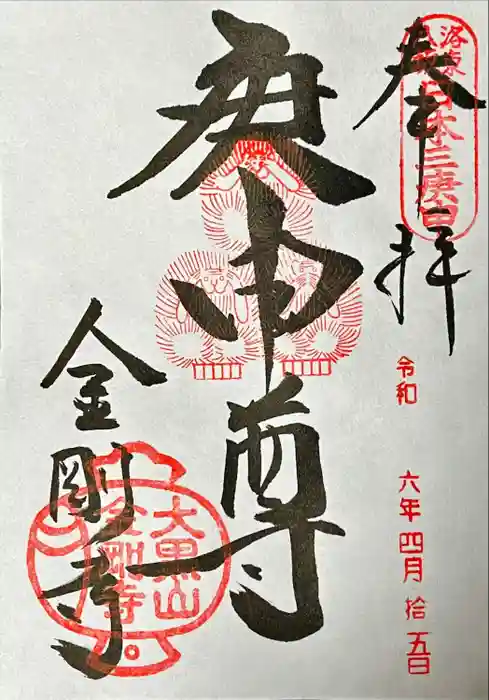 奉拝
洛東
日本三庚申
令和 六年四月拾五日
庚申尊
金剛寺
大黒山
金剛寺